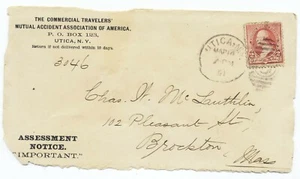 THE COMMERCIAL TRAVELERS'
MUTUAL ACCIDENT ASSOCIATION OF AMERICA.
P. O. BOX 123,
UTICA, N.Y.
Return if not delivered within 10 days.
3046
UTICA
Chas. W. McLauthlin,
102 Pleasant St,
Brockton
Mas
ASSESSMENT
NOTICE.
"IMPORTANT."